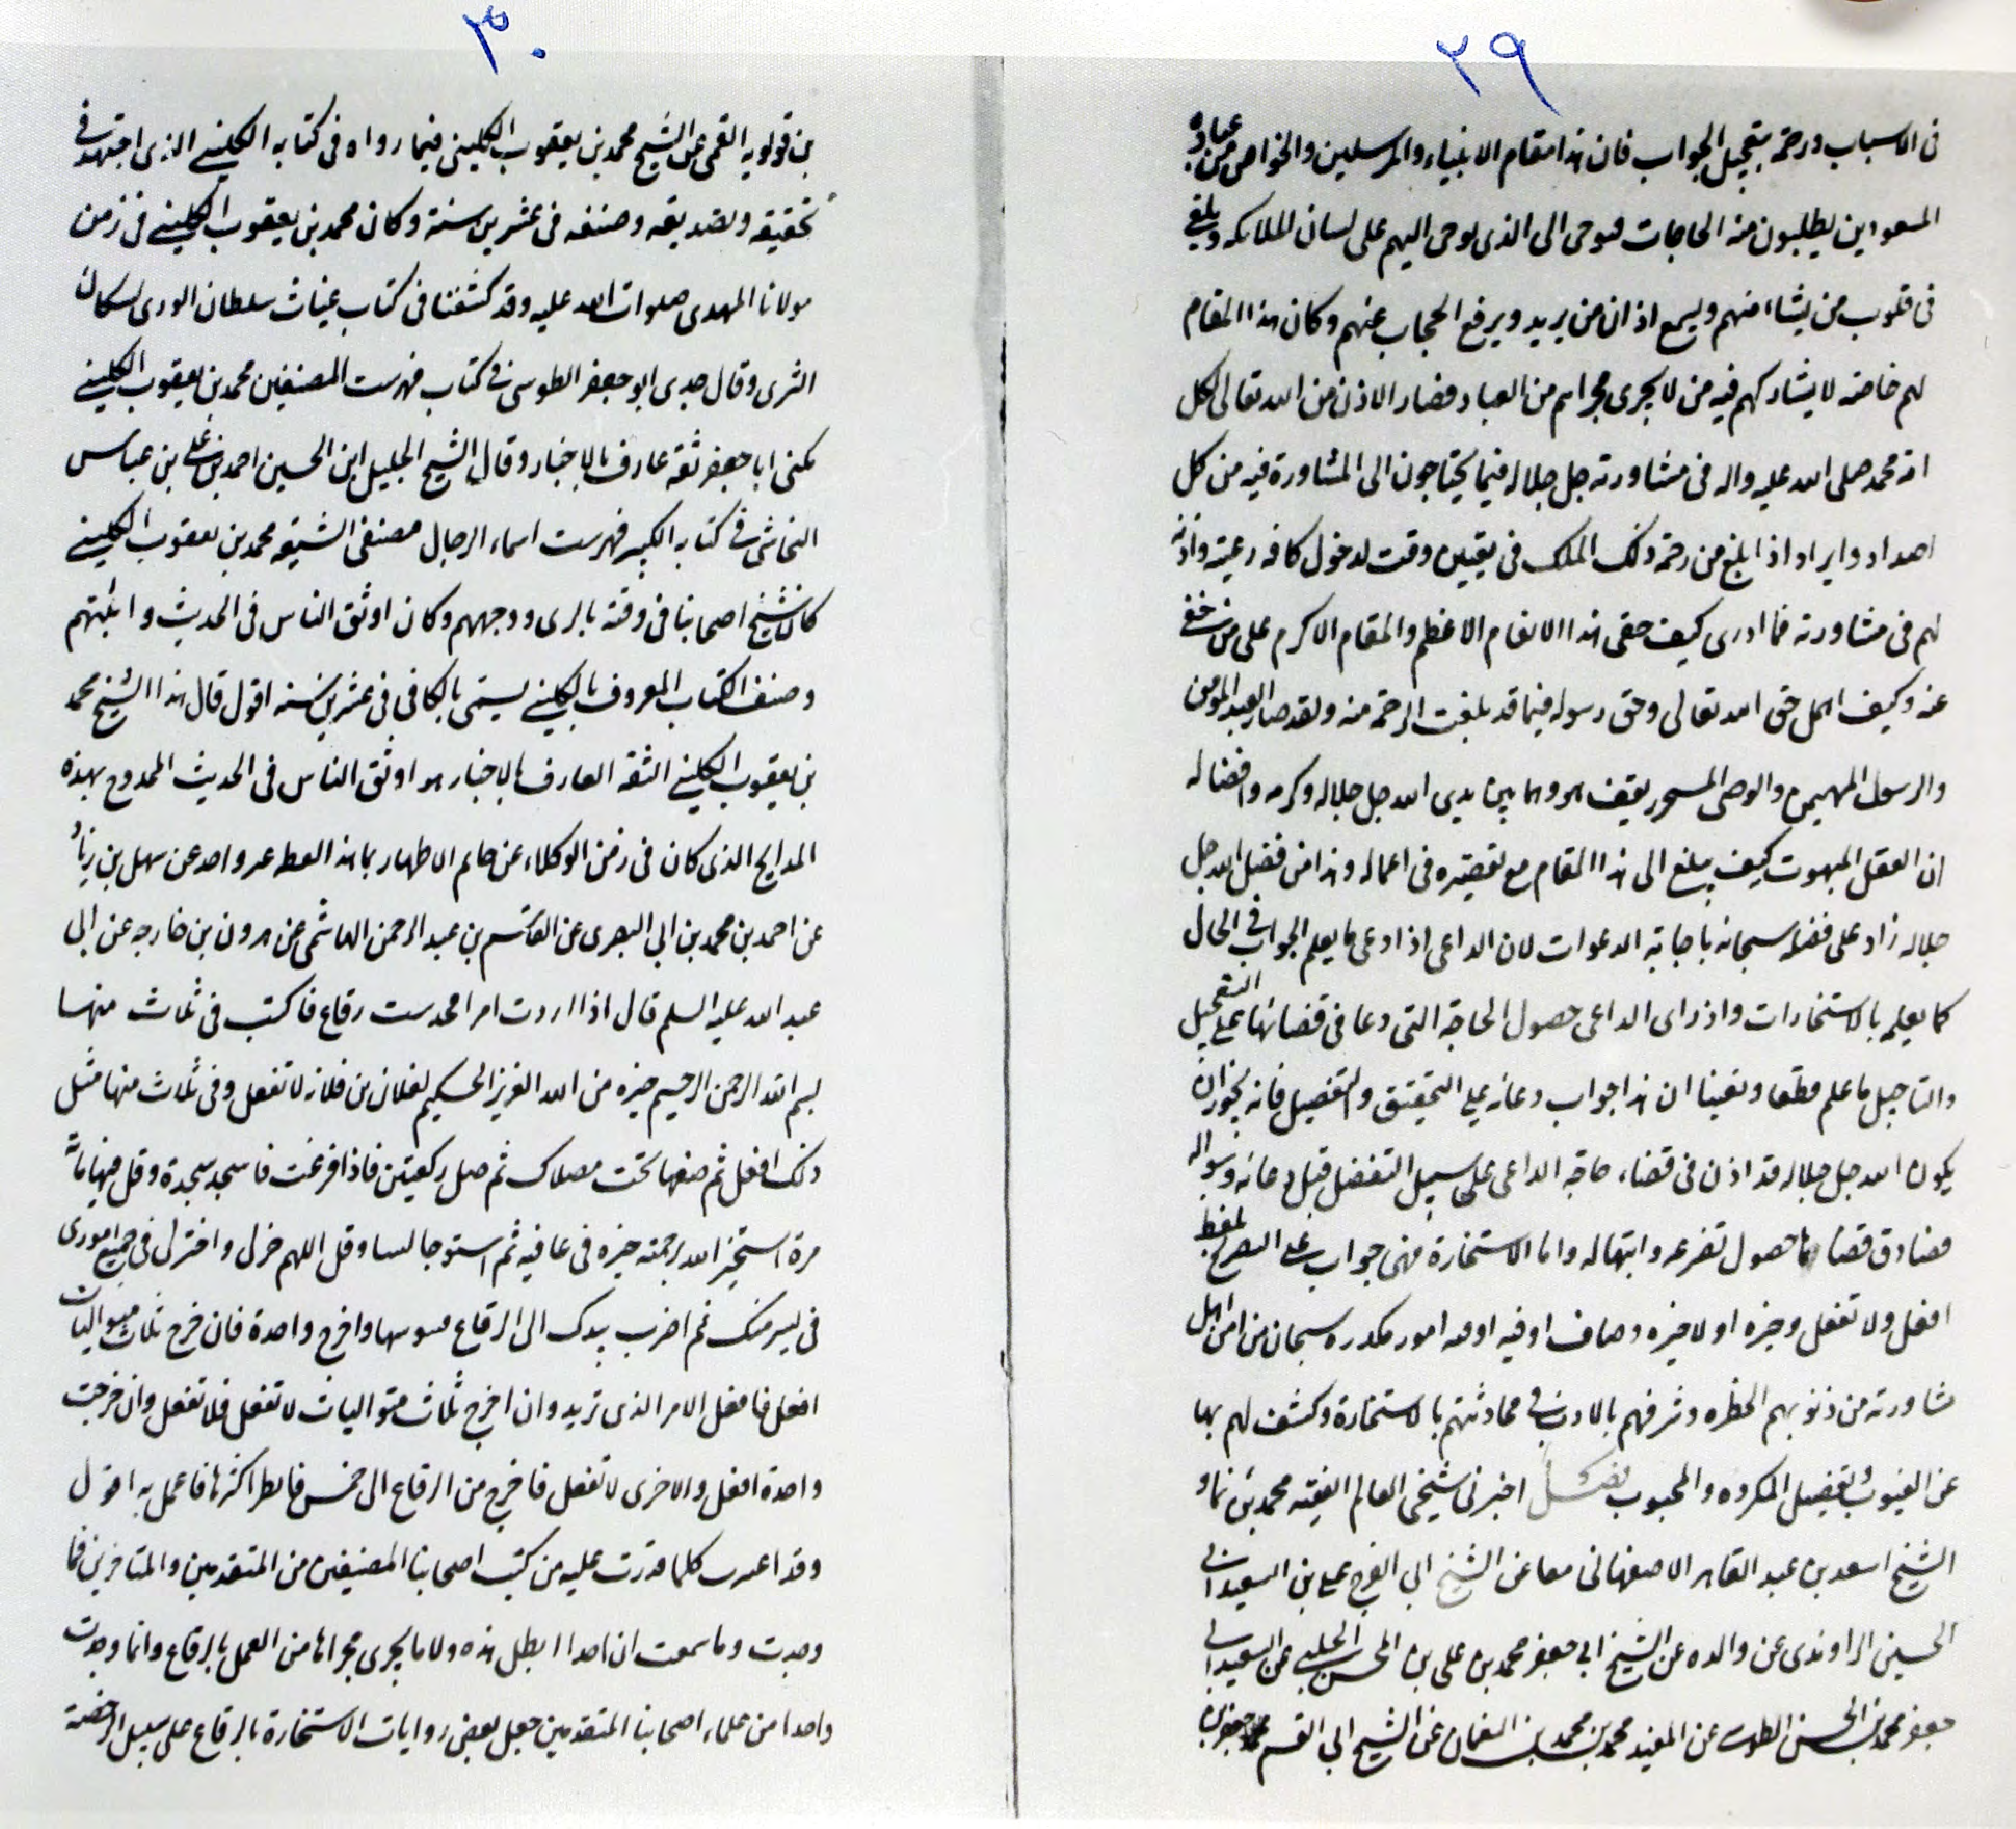 ٢٩
فى الاسباب ورحمة بتعجيل الجواب فان هذا مقام الانبياء والمرسلين والخواص من عباده
المسعودين يطلبون منه الحاجات فيوحى الى الذى يوحى اليهم على لسان الملائكه ويلقى
فى قلوب من يشاء منهم ويسمع اذان من يريد ويرفع الحجاب عنهم وكان هذا المقام
لهم خاصه لا يشاركهم فيه من لا يجرى مجراهم من العباد فصار الاذن من الله تعالى لكل
امة محمد صلى الله عليه واله فى مشاورته جل جلاله فيما يحتاجون الى المشاورة فيه من كل
اصدار وايراد اذا ابلغ من رحمة ذلك الملك فى تعيين وقت لدخول كافه رعيته واذنه
لهم فى مشاورته فما ادرى كيف خفى هذا الانعام الاعظم والمقام الاكرم على من خفى
عنه وكيف اهمل حق الله تعالى وحق رسوله فيما قد بلغت الرحمة منه ولقد صار العبد المومن
والرسول المهيمن والوصى يقف هو وهما بين يدى الله جل جلاله وكرمه وافضاله
ان العقل المبهوت كيف يبلغ الى هذا المقام مع تقصيره فى اعماله وهذا من فضل الله جل
جلاله زاد على فضله سبحانه باجابة الدعوات لان الداعى اذا دعى ما يعلم الجواب فى الحال
كما يعلم بالاستخارات واذا راى الداعى حصول الحاجة التى دعا فى قضائها على التعجيل
والتاجيل ما علم قطعا ويقينا ان هذا جواب دعائه على التحقيق والتفصيل فانه يجوز ان
يكون الله جل جلاله قد اذن فى قضاء حاجة الداعى على سبيل التفضل قبل دعائه وسواله
فصادف قضاءها حصول تضرعه وابتهاله واما الاستخارة فهى جواب على التصريح بلفظ
افعل ولا تفعل وخيره او لا خيره وصاف او فيه امور مكدره سبحان من اهل
مشاورته من ذنوبهم الخطره وشرفهم بالاذن فى محادثتهم بالاستخارة وكشف لهم بها
عن الغيوب وتفصيل المكروه والمحبوب فصل اخبرنى شيخى العالم الفقيه محمد بن نما و
الشيخ اسعد بن عبد القاهر الاصفهانى معا عن الشيخ ابى الفرج على بن السعيد ابى
الحسين الراوندى عن والده عن الشيخ ابى جعفر محمد بن على بن المحسن الحلبى عن السعيد ابى
جعفر محمد بن الحسن الطوسى عن المفيد محمد بن محمد بن النعمان عن الشيخ ابى القسم جعفر بن
٣٠
بن قولويه القمى عن الشيخ محمد بن يعقوب الكلينى فيما رواه فى كتابه الكلينى الذى اجتهد فى
تحقيقه وتصديقه وصنفه فى عشرين سنة وكان محمد بن يعقوب الكلينى فى زمن
مولانا المهدى صلوات الله عليه وقد كشفنا فى كتاب غياث سلطان الورى لسكان
الثرى وقال جدى ابو جعفر الطوسى فى كتاب فهرست المصنفين محمد بن يعقوب الكلينى
يكنى ابا جعفر ثقة عارف بالاخبار وقال الشيخ الجليل ابن الحسين احمد بن على بن عباس
النجاشى فى كتابه الكبير فهرست اسماء الرجال مصنفى الشيعه محمد بن يعقوب الكلينى
كان شيخ اصحابنا فى وقته بالرى ووجههم وكان اوثق الناس فى الحديث واثبتهم
وصنف الكتاب المعروف بالكلينى يسمى بالكافى فى عشرين سنه اقول قال هذا الشيخ محمد
بن يعقوب الكلينى الثقه العارف بالاخبار هو اوثق الناس فى الحديث الممدوح بهذه
المدايح الذى كان فى زمن الوكلاء عن خاتم الاطهار بما هذا لفظه غير واحد عن سهل بن زياد
عن احمد بن محمد بن ابى البصرى عن القسم بن عبد الرحمن الهاشمى عن هرون بن خارجه عن ابى
عبد الله عليه السلم قال اذا اردت امرا فخذ ست رقاع فاكتب فى ثلاث منها
بسم الله الرحمن الرحيم خيره من الله العزيز الحكيم لفلان بن فلانه لا تفعل وفى ثلاث منها مثل
ذلك افعل ثم ضعها تحت مصلاك ثم صل ركعتين فاذا فرغت فاسجد سجدة وقل فيها مائة
مرة استخير الله برحمته خيره فى عافيه ثم استو جالسا وقل اللهم خر لى واختر لى فى جميع امورى
فى يسر منك ثم اضرب بيدك الى الرقاع فشوشها واخرج واحدة فان خرج ثلاث متواليات
افعل فافعل الامر الذى تريد وان اخرج ثلاث متواليات لا تفعل فلا تفعل وان خرجت
واحدة افعل والاخرى لا تفعل فاخرج من الرقاع الى خمس فانظر اكثرها فاعمل به اقول
وقد اعتبرت كلما قدرت عليه من كتب اصحابنا المصنفين من المتقدمين والمتاخرين فما
وجدت وما سمعت ان احدا ابطل هذه ولا ما يجرى مجراها من العمل بالرقاع وانما وجدت
واحدا من علماء اصحابنا المتقدمين جعل بعض روايات الاستخارة بالرقاع على سبيل الرخصة